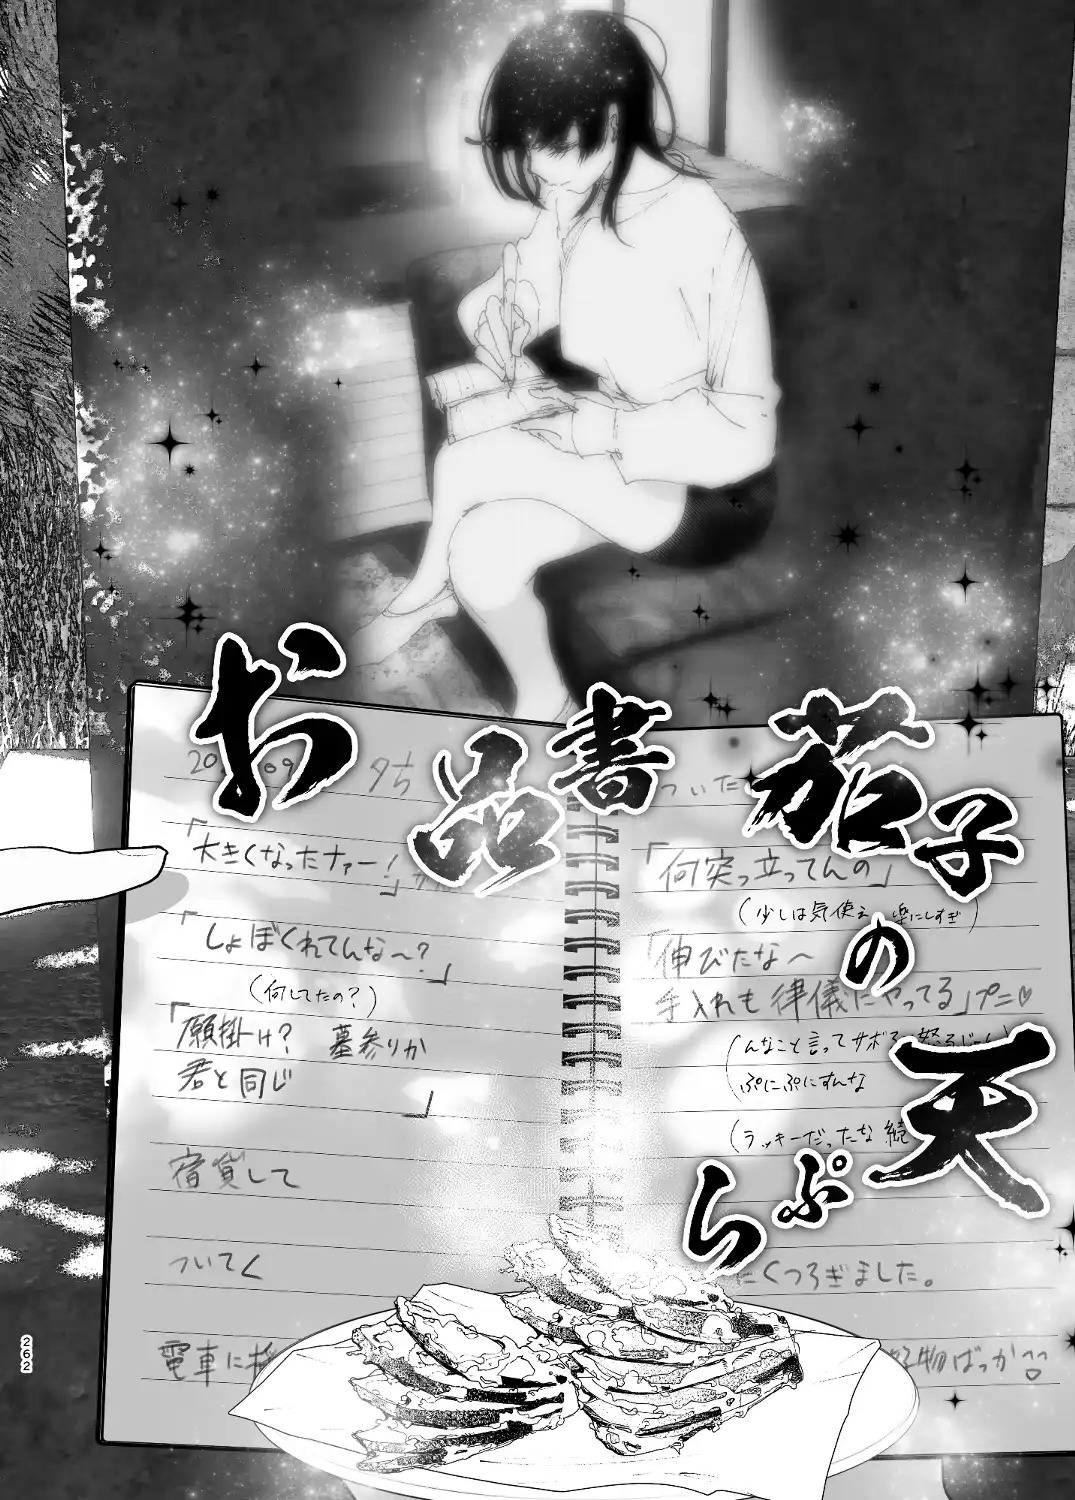 お品書
茄子の天ぷら
夕方
「大きくなったナァー！」
「しょぼくれてんな〜？」
(何してたの？)
「願掛け？ 墓参りか
君と同じ
」
宿貸して
ついてく
電車に
ついた
「何突っ立ってんの」
(少しは気使え 楽にしすぎ)
「伸びたな〜
手入れも律儀にやってる」プニ♡
(んなこと言ってサボる
ぷにぷにすんな
(ラッキーだったな 続
にくつろぎました。
物ばっか
262